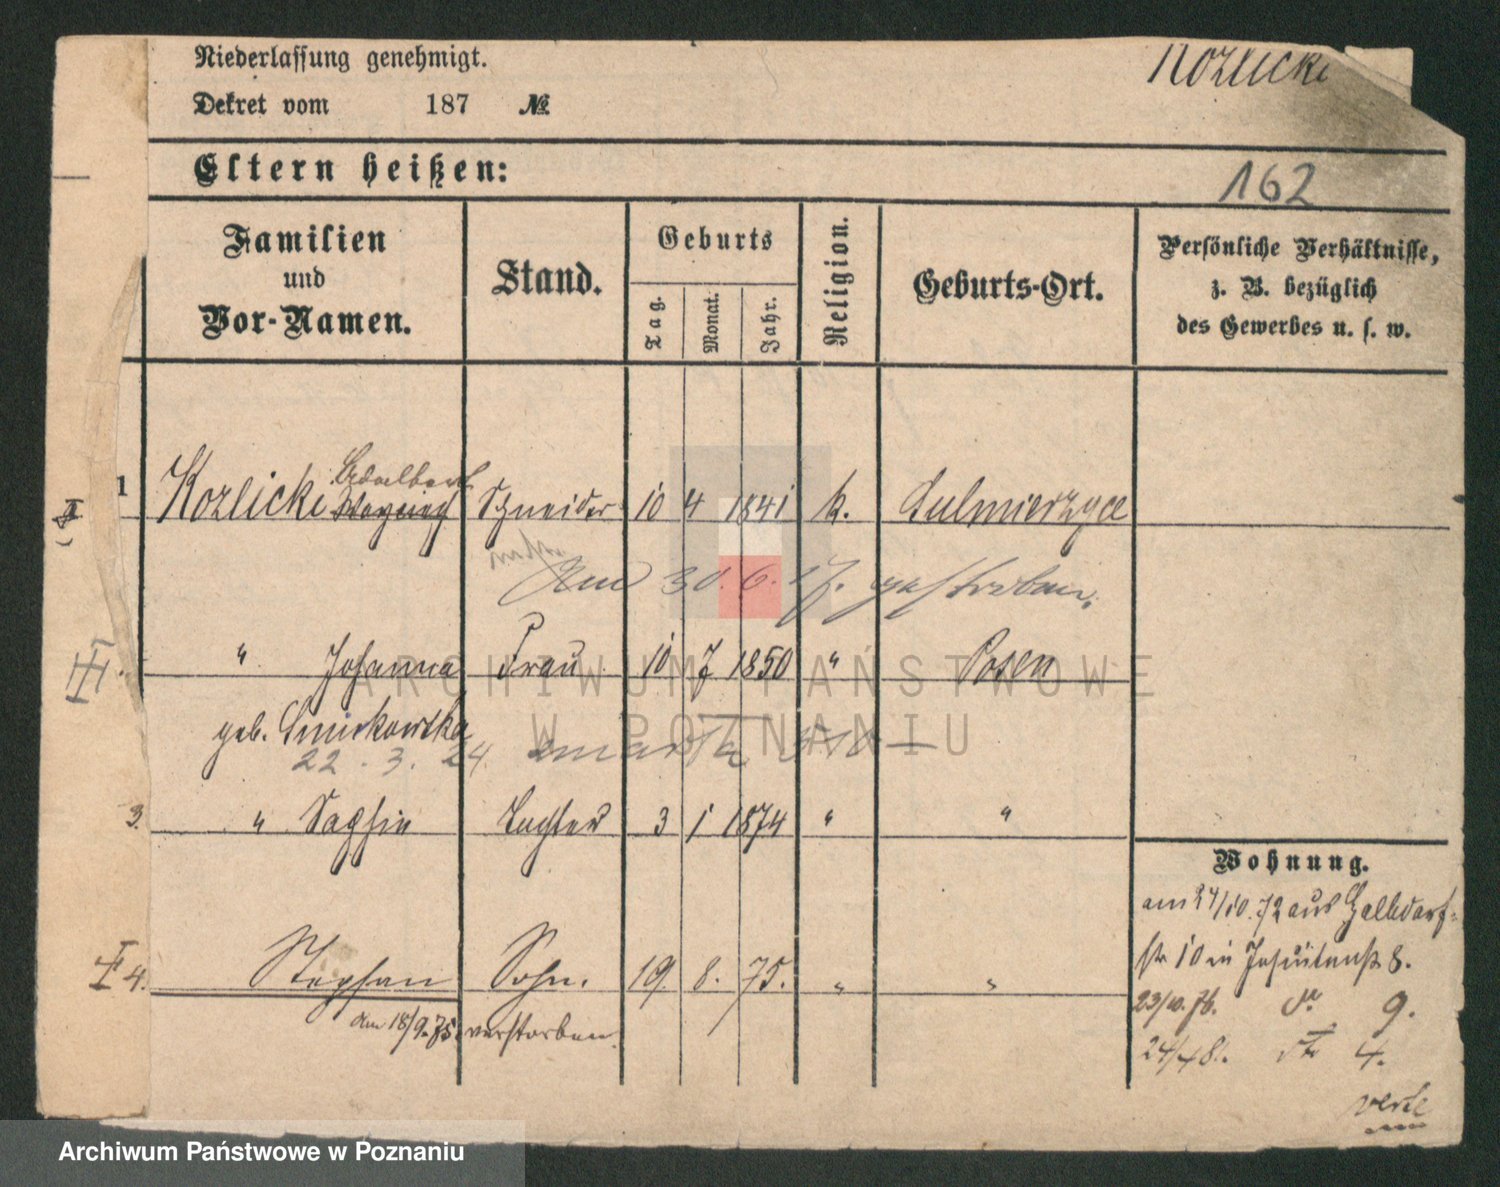 Niederlassung genehmigt.
Kozlicki
Dekret vom 187 №
Eltern heißen:
162
Familien
und
Vor-Namen.
Stand.
Geburts
Tag.
Monat.
Jahr.
Religion.
Geburts-Ort.
Persönliche Verhältnisse,
z. B. bezüglich
des Gewerbes u. s. w.
Adalbert
1 Kozlicki Schneider 10 4 1841 k. Sulmierzyce
Am 30. 6. 17. gestorben.
II. " Johanna Frau 10 7 1850 " Posen
geb. Smirkowska
22. 3. 24
3. " Sophie Tochter 3 1 1874 " "
Wohnung.
am 24/10. 72 aus Halbdorf-
str 10 in Jesuitenstr 8.
4. Stephan Sohn. 19. 8. 75. " "
23/10. 76. do 9.
Am 18/9. 75. verstorben.
4.
verte
ARCHIWUM PAŃSTWOWE
W POZNANIU
Archiwum Państwowe w Poznaniu